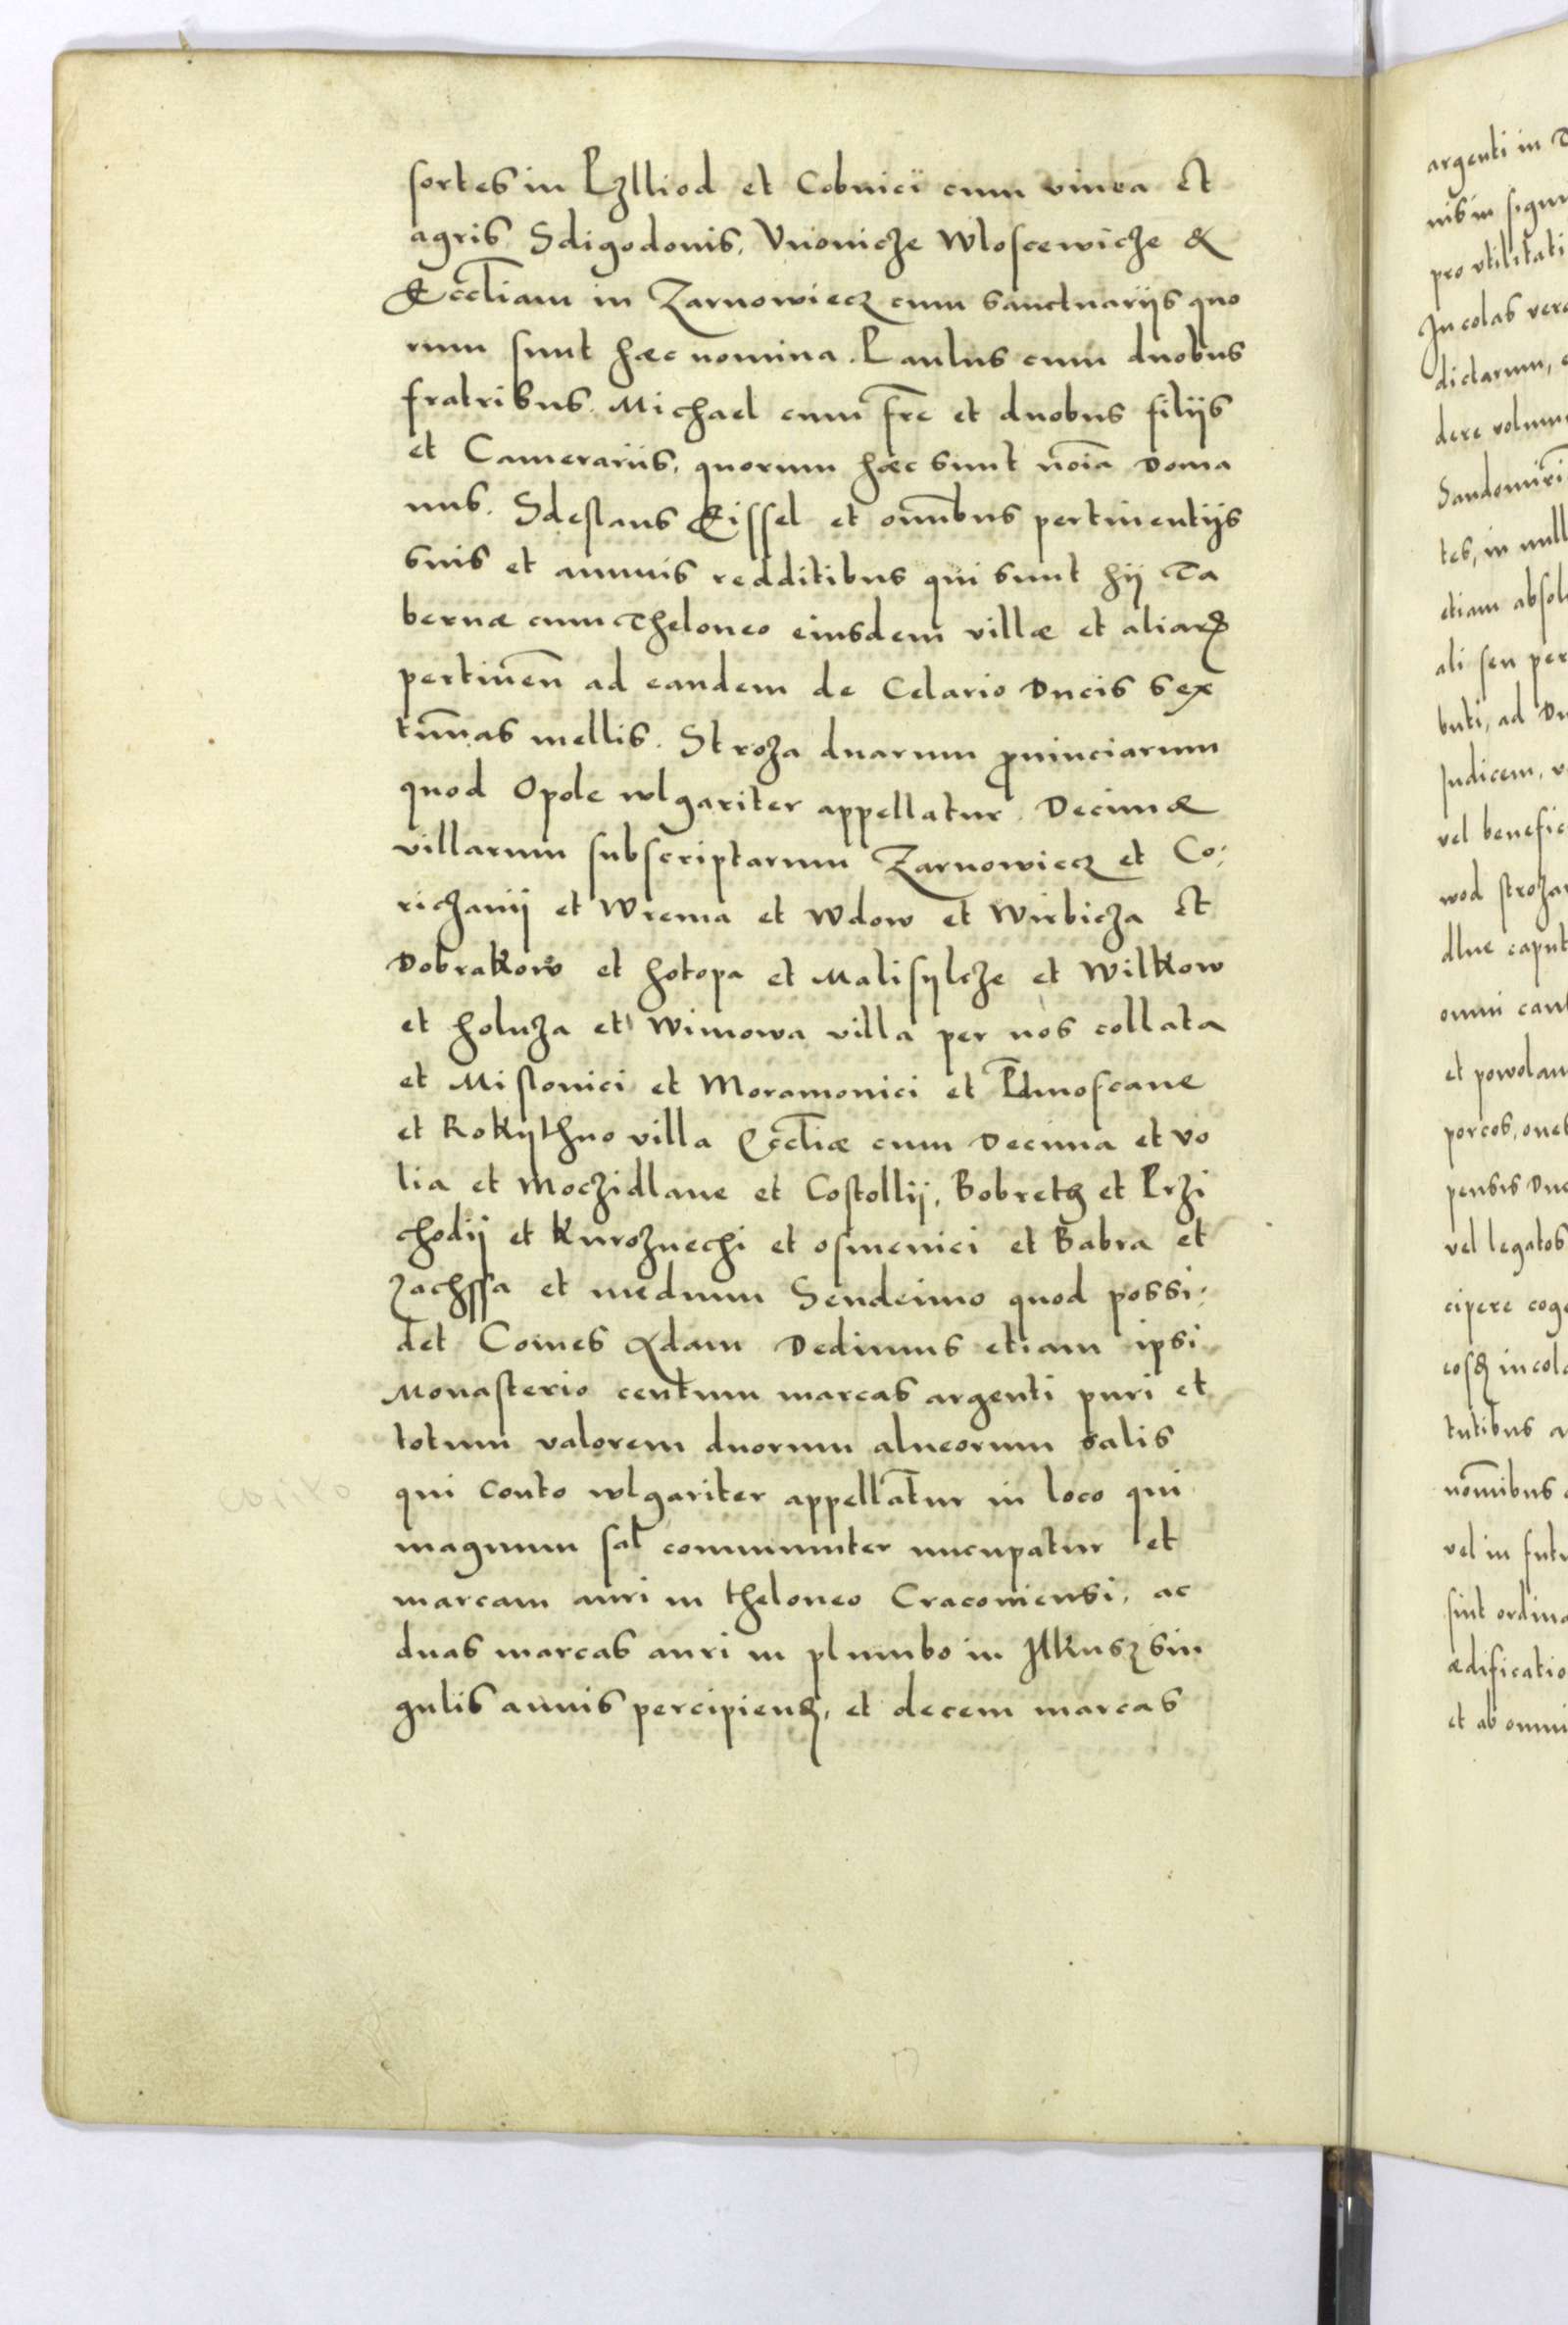 sortes in Pzlliod et Cobnici cum vinea et
agris Sdigodonis, Vnonicze Wloscewicze &
Eccl̄iam in Zarnowiecz cum sanctuariis quo
rum sunt hæc nomina. Paulus cum duobus
fratribus. Michael cum fr̄e et duobus filijs
et Camerariis, quorum hæc sunt nōia Doma
nus. Sdestans Eissel et omn̄bus pertinentijs
suis et annuis redditibus qui sunt hij Ta
bernæ cum Theloneo eiusdem villæ et aliarꝝ
pertinen̄ ad eandem de Celario Ducis sex
tun̄as mellis. Stroza duarum ꝓuinciarum
quod Opole wlgariter appellatur. Decimæ
villarum subscriptarum Zarnowiecz et Co:
riczanij et Wrema et Wdow et Wirbicza et
Dobrakow et hotopa et Malisylcze et Wilkow
et holuza et Wimowa villa per nos collata
et Mistonici et Moramonici et Edmoscane
et Rokythno villa Eccl̄iæ cum Decima et vo
lia et Moczidlane et Costollij, Bobretz et Przi
chodij et Kuroznechi et osmenici et Babra et
Zachssa et medium Sendeimo quod possi:
det Comes Adam Dedimus etiam ipsi
Monasterio centum marcas argenti puri et
totum valorem duorum alueorum salis
qui Couto wlgariter appellātur in loco qui
magnum sal communiter nucupatur et
marcam auri in theloneo Cracouiensi, ac
duas marcas auri in plumbo in Ilkusz sin
gulis annis percipienꝺ, et decem marcas
conto
argenti in
nis in
pro vtilitati
Incolas vero
dictarum,
dere volumu
Sandomiri
tes, in null
etiam absol
ali seu per
buti, ad Du
Judicem, v
vel benefic
wod stroza
dlne caput
omni
et powolan
porcos, oues
pensis Duc
vel legatos
cipere coge
incola
tutibus a
nōminibus
vel in futu
sint ordina
ædificatio
et ab omni